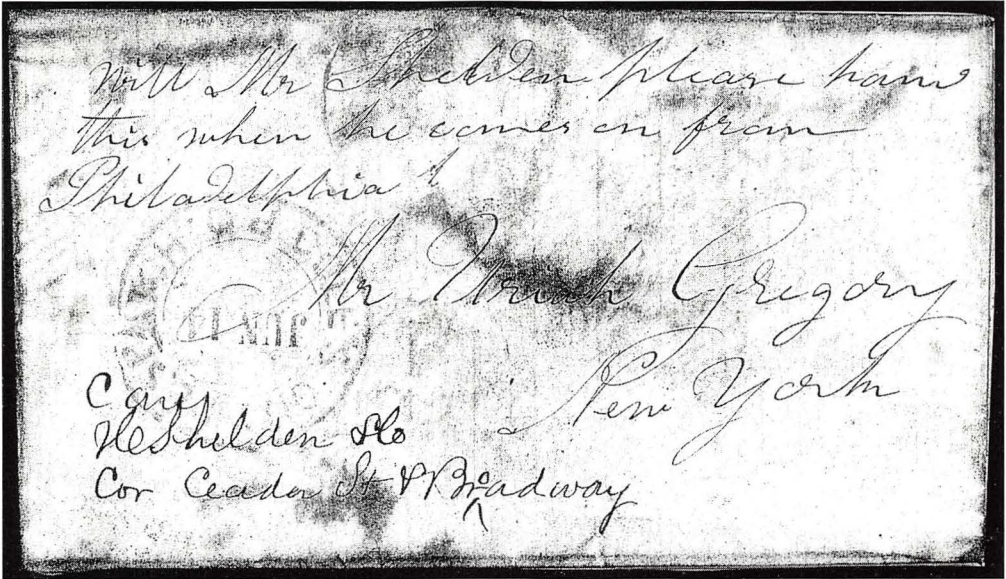 Will Mr Shelden please hand
this when he comes on from
Philadelphia
Mr Uriah Gregory
New York
Care
H Shelden & Co
Cor Ceadar St & Broadway